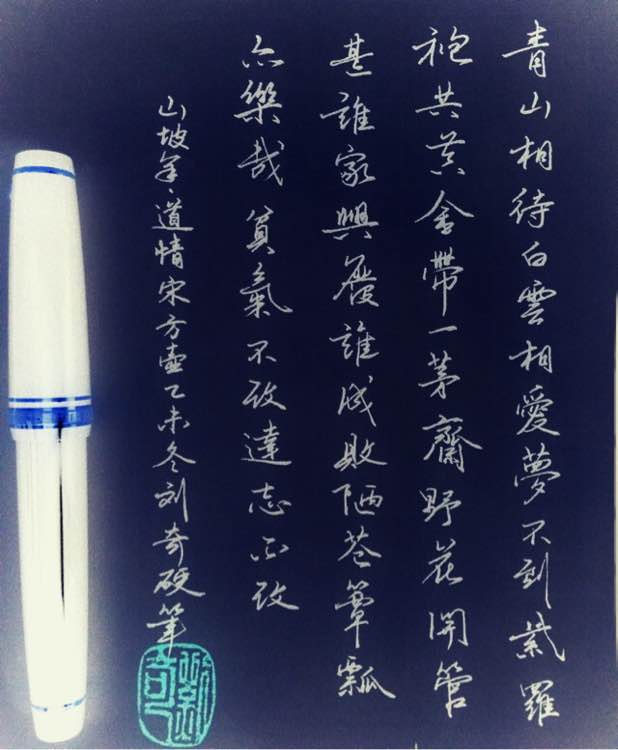 青山相待白雲相愛夢不到紫羅
袍共黄金帶一茅齋野花開管
甚誰家興廢誰成敗陋巷簞瓢
亦樂哉貧氣不改達志不改
山坡羊·道情宋方壺乙未冬刘奇硬筆
劉奇